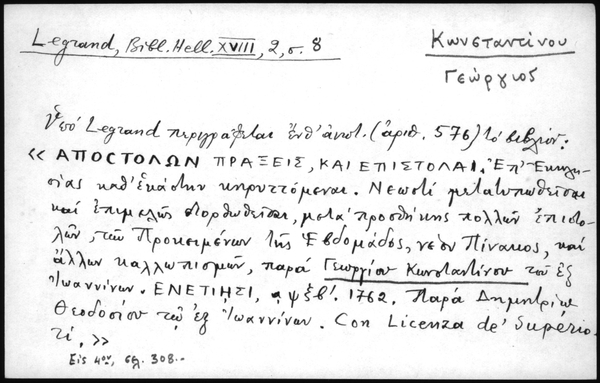 Legrand, Bibl. Hell. XVIII, 2, σ. 8
Κωνσταντίνου
Γεώργιος
Ὑπό Legrand περιγράφεται ἐνθ' ἀνωτ. (ἀριθ. 576) τό βιβλίον:
« ΑΠΟΣΤΟΛΩΝ ΠΡΑΞΕΙΣ, ΚΑΙ ΕΠΙΣΤΟΛΑΙ. Ἐπ' Ἐκκλη-
σίας καθ' ἑκάστην κηρυττόμεναι. Νεωστί μετατυπωθεῖσαι
καί ἐπιμελῶς διορθωθεῖσαι, μετά προσθήκης πολλῶν ἐπιστο-
λῶν, τῶν Προκειμένων τῆς Ἑβδομάδος, νέου Πίνακος, καί
ἄλλων καλλωπισμῶν, παρά Γεωργίου Κωνσταντίνου τοῦ ἐξ
Ἰωαννίνων. ΕΝΕΤΙΗΣΙ, αψξβ'. 1762. Παρά Δημητρίῳ
Θεοδοσίου τῷ ἐξ Ἰωαννίνων. Con Licenza de' Superio-
ri. »
Εἰς 4ον, σελ. 308.-